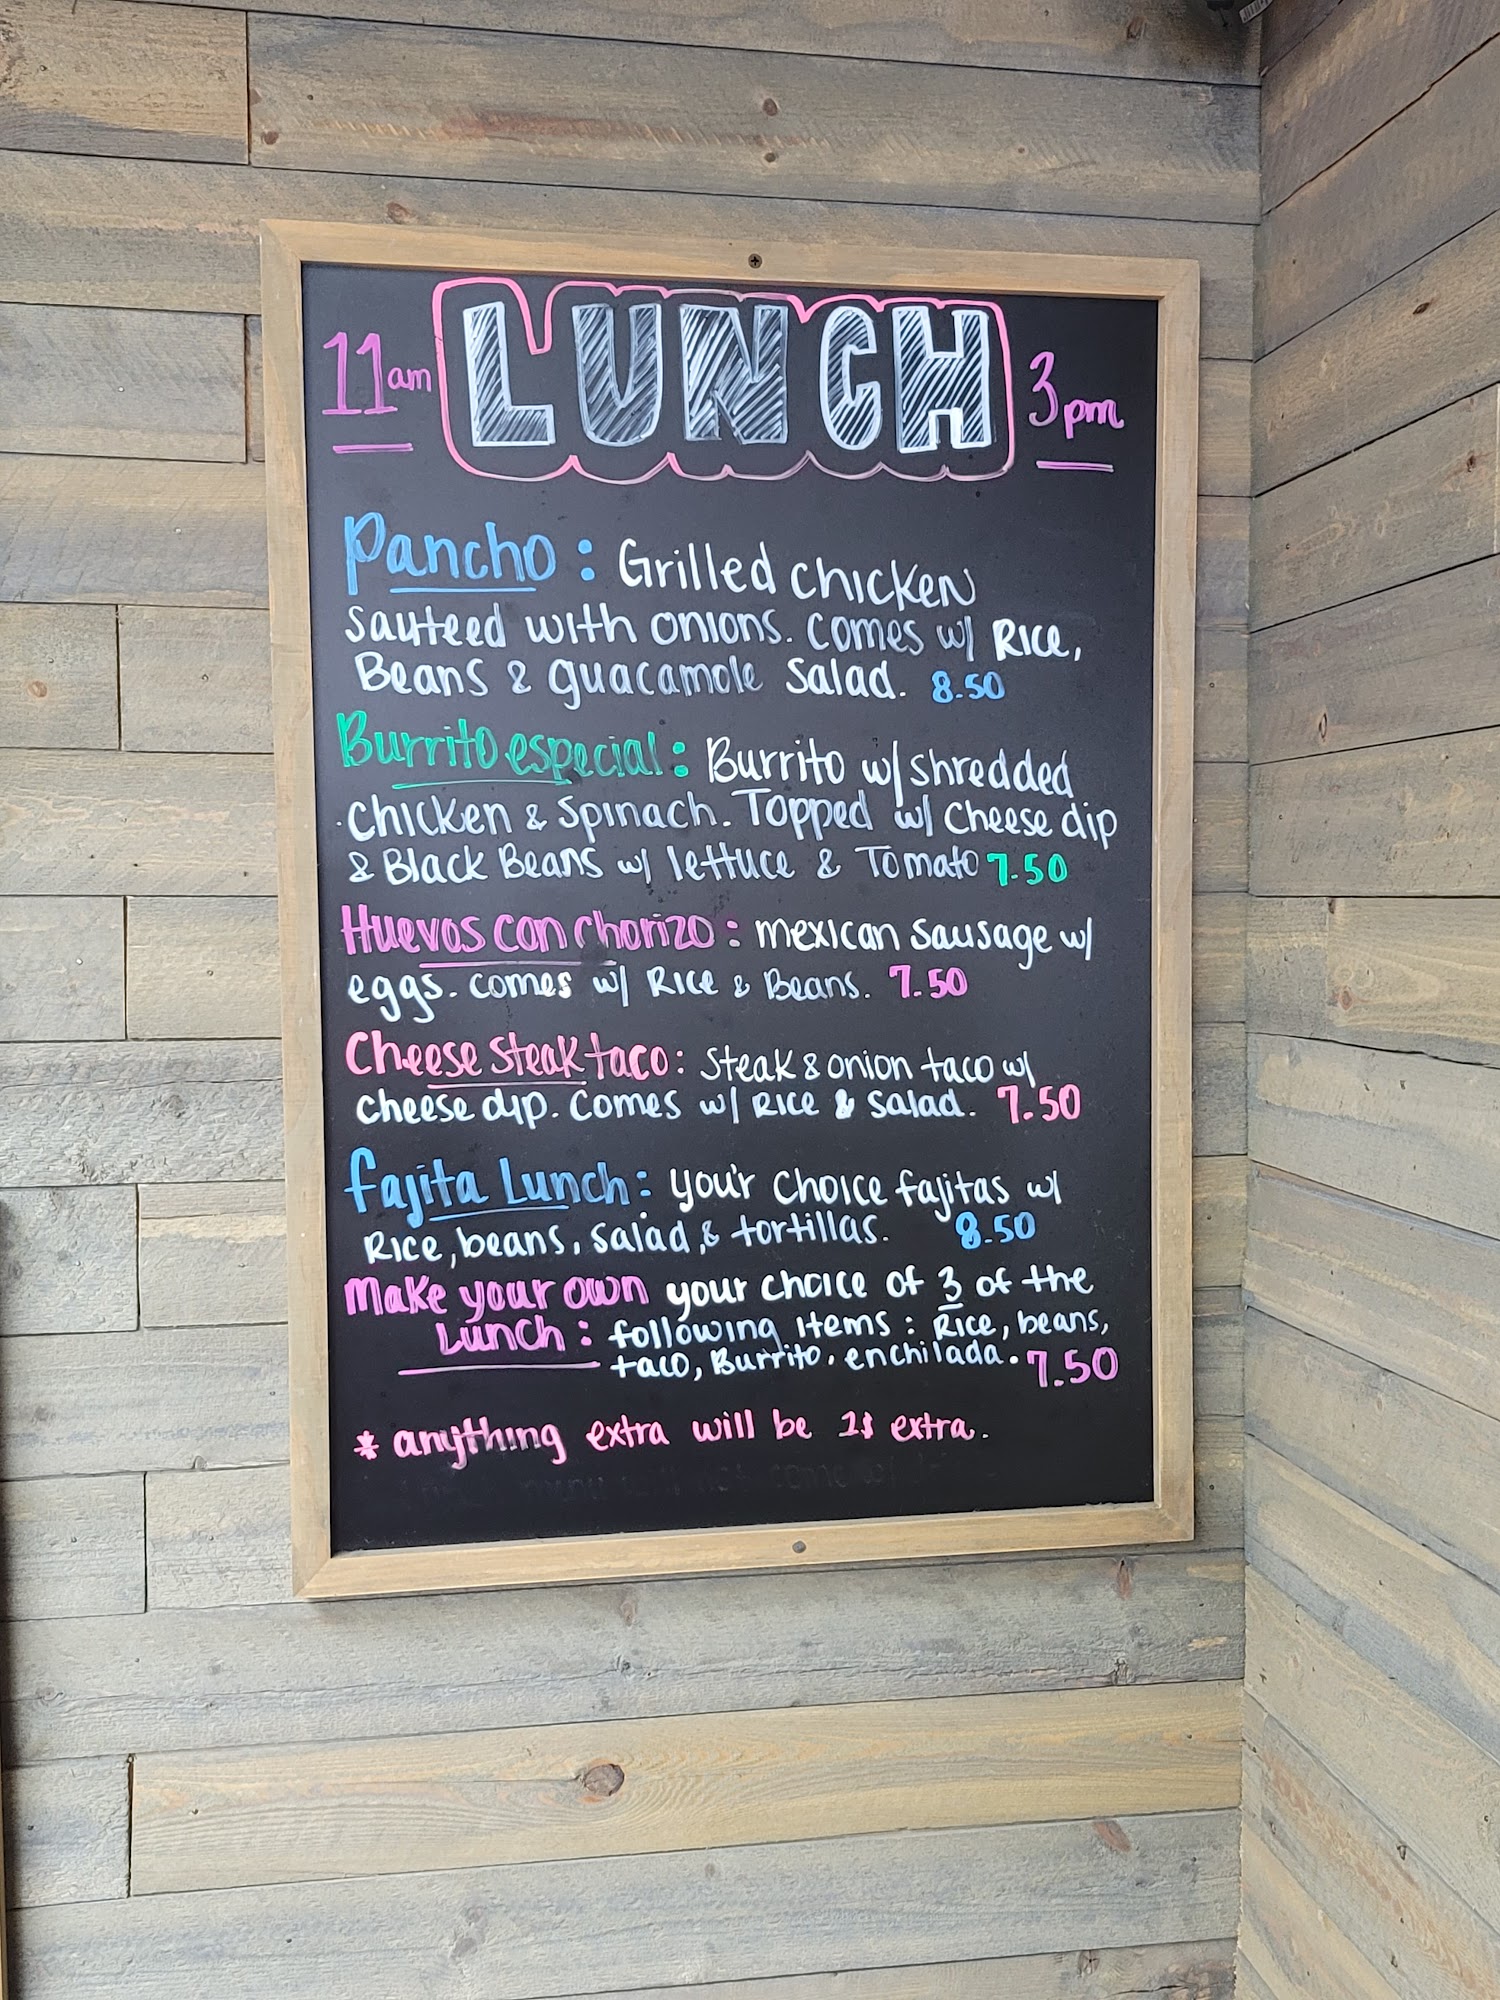 11am LUNCH 3pm
Pancho: Grilled chicken
sauteed with onions. Comes w/ Rice,
Beans & guacamole salad. 8.50
Burrito especial: Burrito w/ shredded
chicken & spinach. Topped w/ cheese dip
& Black Beans w/ lettuce & Tomato 7.50
Huevos con chorizo: mexican sausage w/
eggs. comes w/ Rice & Beans. 7.50
Cheese steak taco: steak & onion taco w/
cheese dip. Comes w/ Rice & salad. 7.50
Fajita Lunch: you'r choice fajitas w/
Rice, beans, salad, & tortillas. 8.50
Make your own your choice of 3 of the
Lunch: following items: Rice, beans,
taco, Burrito, enchilada. 7.50
* anything extra will be 1$ extra.